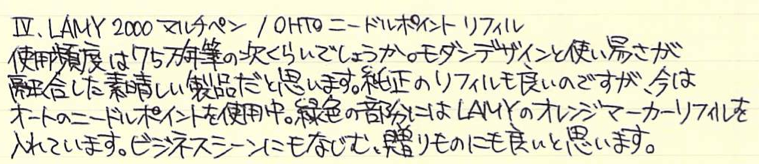 Ⅳ. LAMY 2000 マルチペン / OHTO ニードルポイント リフィル
使用頻度は75万年筆の次くらいでしょうか。モダンデザインと使い易さが
融合した素晴しい製品だと思います。純正のリフィルも良いのですが、今は
オートのニードルポイントを使用中。緑色の部分にはLAMYのオレンジマーカーリフィルを
入れています。ビジネスシーンにもなじむ、贈りものにも良いと思います。